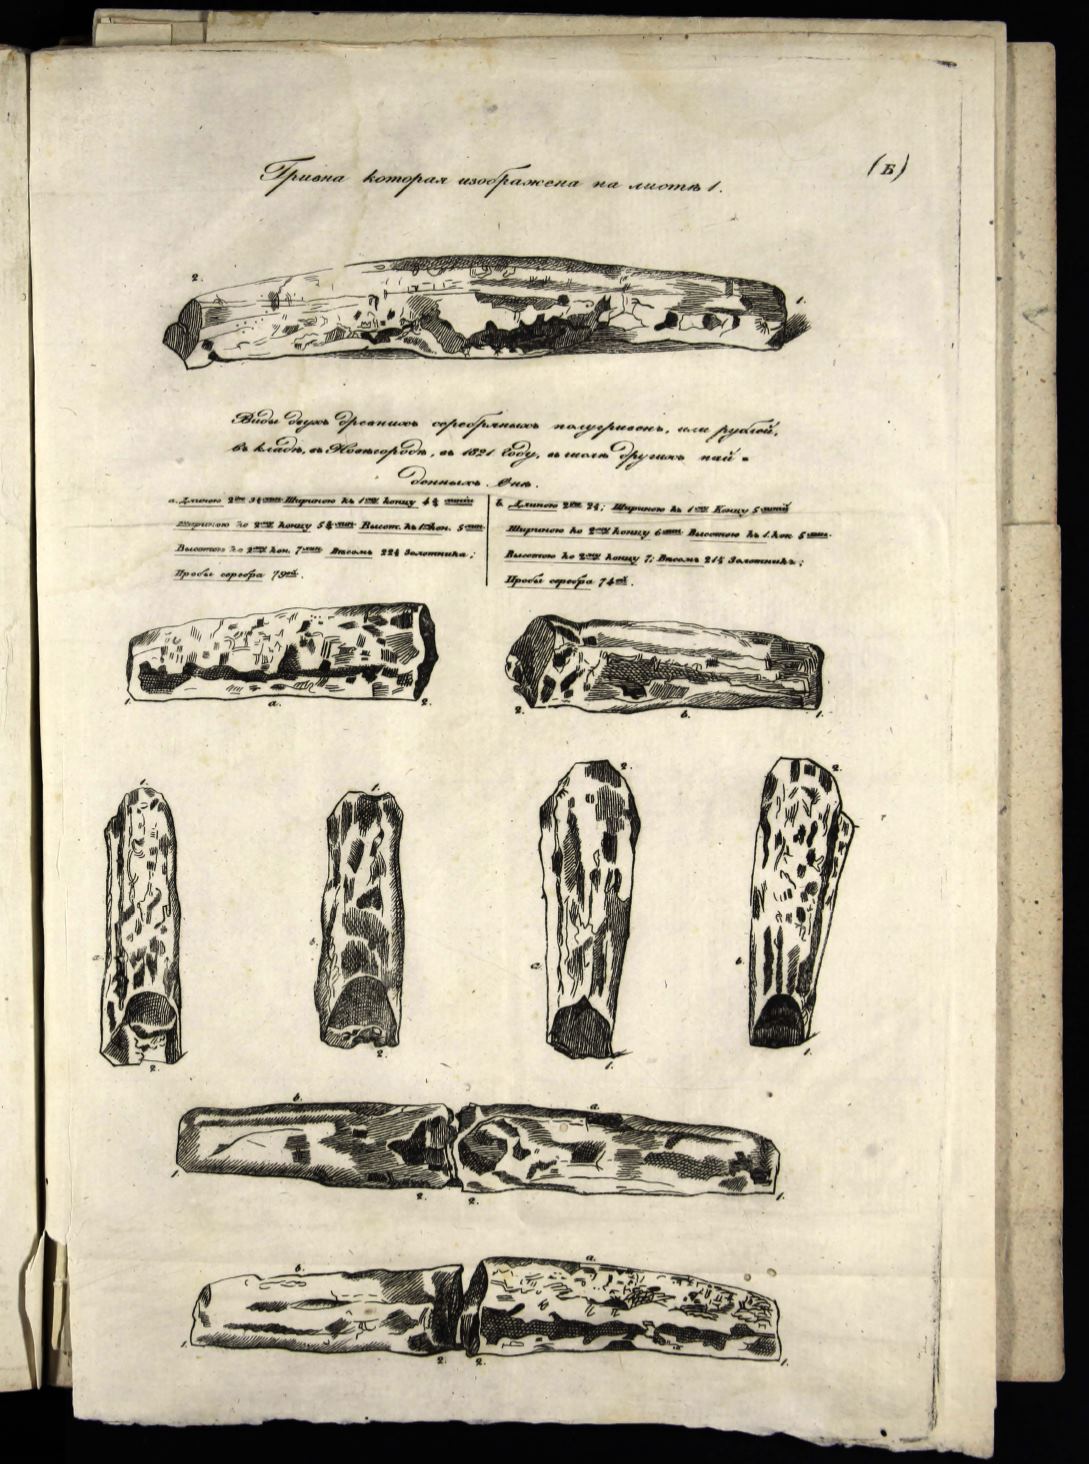 (Б)
Гривна которая изображена на листѣ 1.
2.
1.
Виды двухъ древнихъ серебряныхъ полугривенъ, или рублей,
въ кладѣ, въ Новѣгородѣ, въ 1821 году, въ числѣ другихъ най-
денныхъ. Онѣ.
а. Длиною Шириною къ концу
Шириною ко концу Высот. къ кон. 5
Высотою ко кон. 7 Вѣсомъ золотника;
Пробы серебра 79ой.
б. Длиною Шириною къ Концу 5
Шириною ко концу 6 Высотою къ 1. кон. 5
Высотою ко концу 7; Вѣсомъ Золотника;
Пробы серебра 74ой.
1. а. 2.
2. б. 1.
1. 1. 2. 2.
а. б. а. б.
2. 2. 1. 1.
б. а.
1. 2. 2. 1.
б. а.
1. 2. 2. 1.